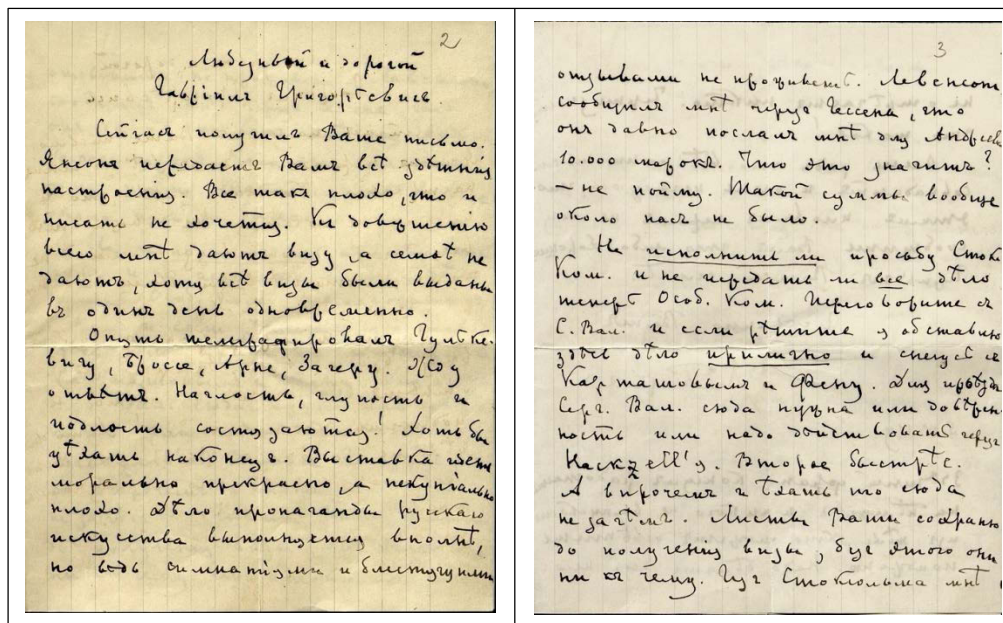 2
Любезный и дорогой
Гавріилъ Григорьевичъ.
Сейчасъ получилъ Ваше письмо.
Янсонъ передастъ Вамъ всѣ здѣшнія
настроенія. Все такъ плохо, что и
писать не хочется. Къ довершенію
всего мнѣ даютъ визу, а семьѣ не
даютъ, хотя всѣ визы были выданы
въ одинъ день одновременно.
Опять телеграфировалъ Гульке-
вичу, Броссе, Арне, Загеру. Жду
отвѣтъ. Наглость, глупость и
подлость состязаются! Хоть бы
уѣхать наконецъ. Выставка идетъ
морально прекрасно, а пекуніально
плохо. Дѣло пропаганды русскаго
искусства выполняется вполнѣ,
но вѣдь симпатіями и блестящими
3
отзывами не проживешь. Левенсонъ
сообщилъ мнѣ черезъ Гессена, что
онъ давно послалъ мнѣ для Андреева
10.000 марокъ. Что это значитъ?
— не пойму. Такой суммы вообще
около насъ не было.
Не исполнить ли просьбу Стокг.
Ком. и не передать ли все дѣло
теперь Особ. Ком. Переговорите съ
С. Вал. и если рѣшите я обставлю
здѣсь дѣло прилично и снесусь съ
Карташовымъ и Фену. Для пріѣзда
Серг. Вал. сюда нужна или довѣрен-
ность или надо дѣйствовать черезъ
Второе быстрѣе.
А впрочемъ и ѣхать то сюда
не зачѣмъ. Листы Ваши сохраню
до полученія визы, безъ этого они
ни къ чему. Изъ Стокгольма мнѣ